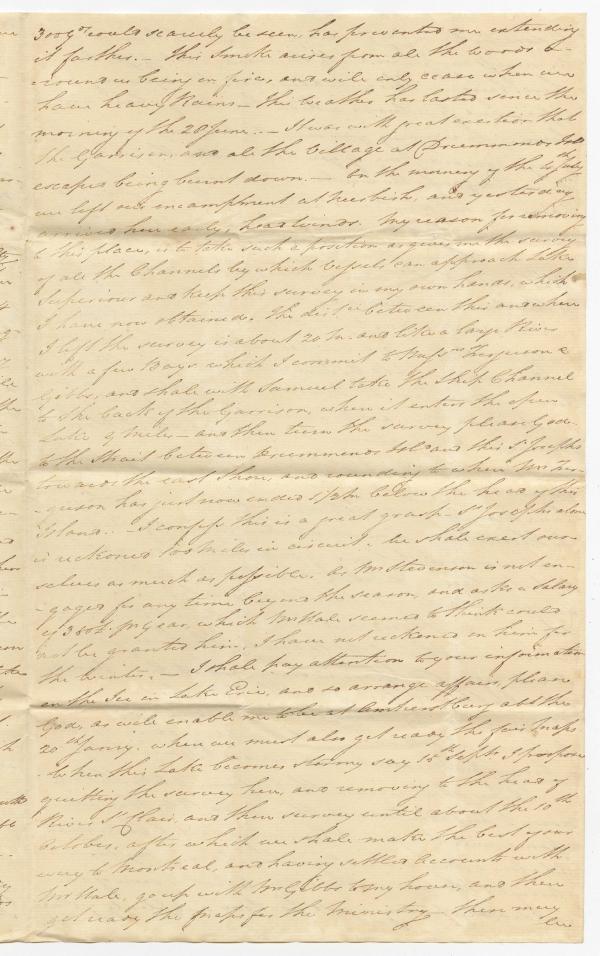 300 yds could scarcely be seen, has prevented me extending
it farther. — This Smoke arises from all the woods a-
-round us being on fire, and will only cease when we
have heavy Rains — this weather has lasted since the
morning of the 28 June. — It was with great exertion that
the Garrison, and all the Village at Drummonds Isld
escaped being burnt down. — On the morning of the July
we left our encampment at Neebish, and yesterday
arrived here early, head winds. My reason for removing
to this place, is to take such a position as gives me the survey
of all the Channels by which Vessels can approach Lake
Superiour and keep this survey in my own hands, which
I have now obtained. The distce between this and where
I left the survey is about 20 m. and like a large River
with a few Bays, which I commit to Messrs Ferguson &
Gibbs, and shall with Samuel take the Ship Channel
to the back of the Garrison, where it enters the open
Lake 9 Miles — and then turn the survey please God
to the Strait between Drummonds Isld and this St Josephs
towards the east Shore, and rounding to where Mr Fer-
-guson has just now ended 5 1/2 m below the head of this
Island. — I confess this is a great grasp — St Josephs alone
is reckoned 100 Miles in circuit. We shall exert our-
selves as much as possible. As Mr Stevenson is not en-
-gaged for any time beyond the season, and asks a Salary
of pr Year, which Mr Hale seemed to think could
not be granted him, I have not reckoned on him for
the winter. — I shall pay attention to your information
on the Ice in Lake Erie, and so arrange affairs, please
God, as will enable me to be at Amherstburg abt the
20th when we must also get ready the fair Maps
- When this Lake becomes stormy say 15th Septr I propose
quitting the survey here, and removing to the head of
River St Clair, and there survey until about the 10th
October, after which we shall make the best of our
way to Montreal, and having settled Accounts with
Mr Hale, go up with Mr Gibbs to my house, and then
get ready the Maps for the Ministry — there may